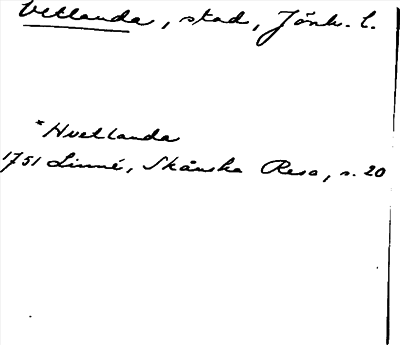 Vetlanda, stad, Jönk. l.
*Hvetlanda
1751 Linné, Skånska Resa, s. 20